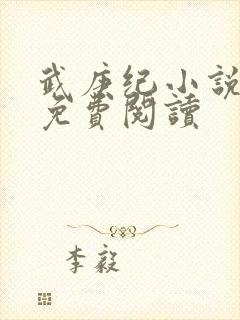 武庚纪小說
免費閱讀
李毅